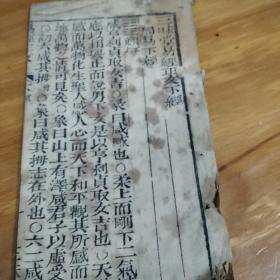 易經正文下經
周易下經
咸亨利貞取女吉○彖曰咸感也○柔上而剛下二氣
感應以相與止而說男下女是以亨利貞取女吉也○天
地感而萬物化生聖人感人心而天下和平觀其所感而
天地萬物之情可見矣○象曰山上有澤咸君子以虛受
人○初六咸其拇○象曰咸其拇志在外也○六二咸